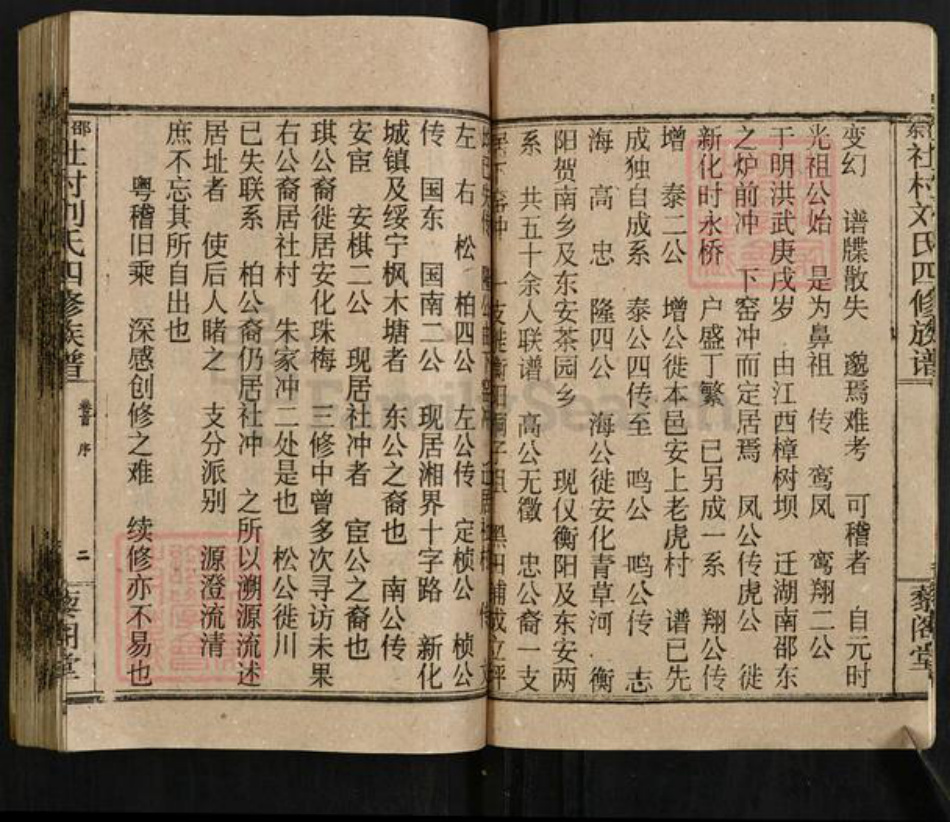 社村刘氏四修族谱
藜阁堂
变幻 谱牒散失 邈焉难考 可稽者 自元时
光祖公始 是为鼻祖 传 鸾凤 鸾翔二公
于明洪武庚戌岁 由江西樟树坝 迁湖南邵东
之炉前冲 下窑冲而定居焉 凤公传虎公 徙
新化时永桥 户盛丁繁 已另成一系 翔公传
增 泰二公 增公徙本邑安上老虎村 谱已先
成独自成系 泰公四传至 鸣公 鸣公传 志
海 高 忠 隆四公 海公徙安化青草河 衡
阳贺南乡及东安茶园乡 现仅衡阳及东安两
系 共五十余人联谱 高公无徵 忠公裔一支
一支徙衡阳 黑田铺成立坪
左 右 松 柏四公 左公传 定桢公 桢公
传 国东 国南二公 现居湘界十字路 新化
城镇及绥宁枫木塘者 东公之裔也 南公传
安宦 安棋二公 现居社冲者 宦公之裔也
琪公裔徙居安化珠梅 三修中曾多次寻访未果
右公裔居社村 朱家冲二处是也 松公徙川
已失联系 柏公裔仍居社冲 之所以溯源流述
居址者 使后人睹之 支分派别 源澄流清
庶不忘其所自出也
粤稽旧乘 深感创修之难 续修亦不易也
邵
社村刘氏四修族谱
卷首 序
二
藜阁堂
FamilySearch